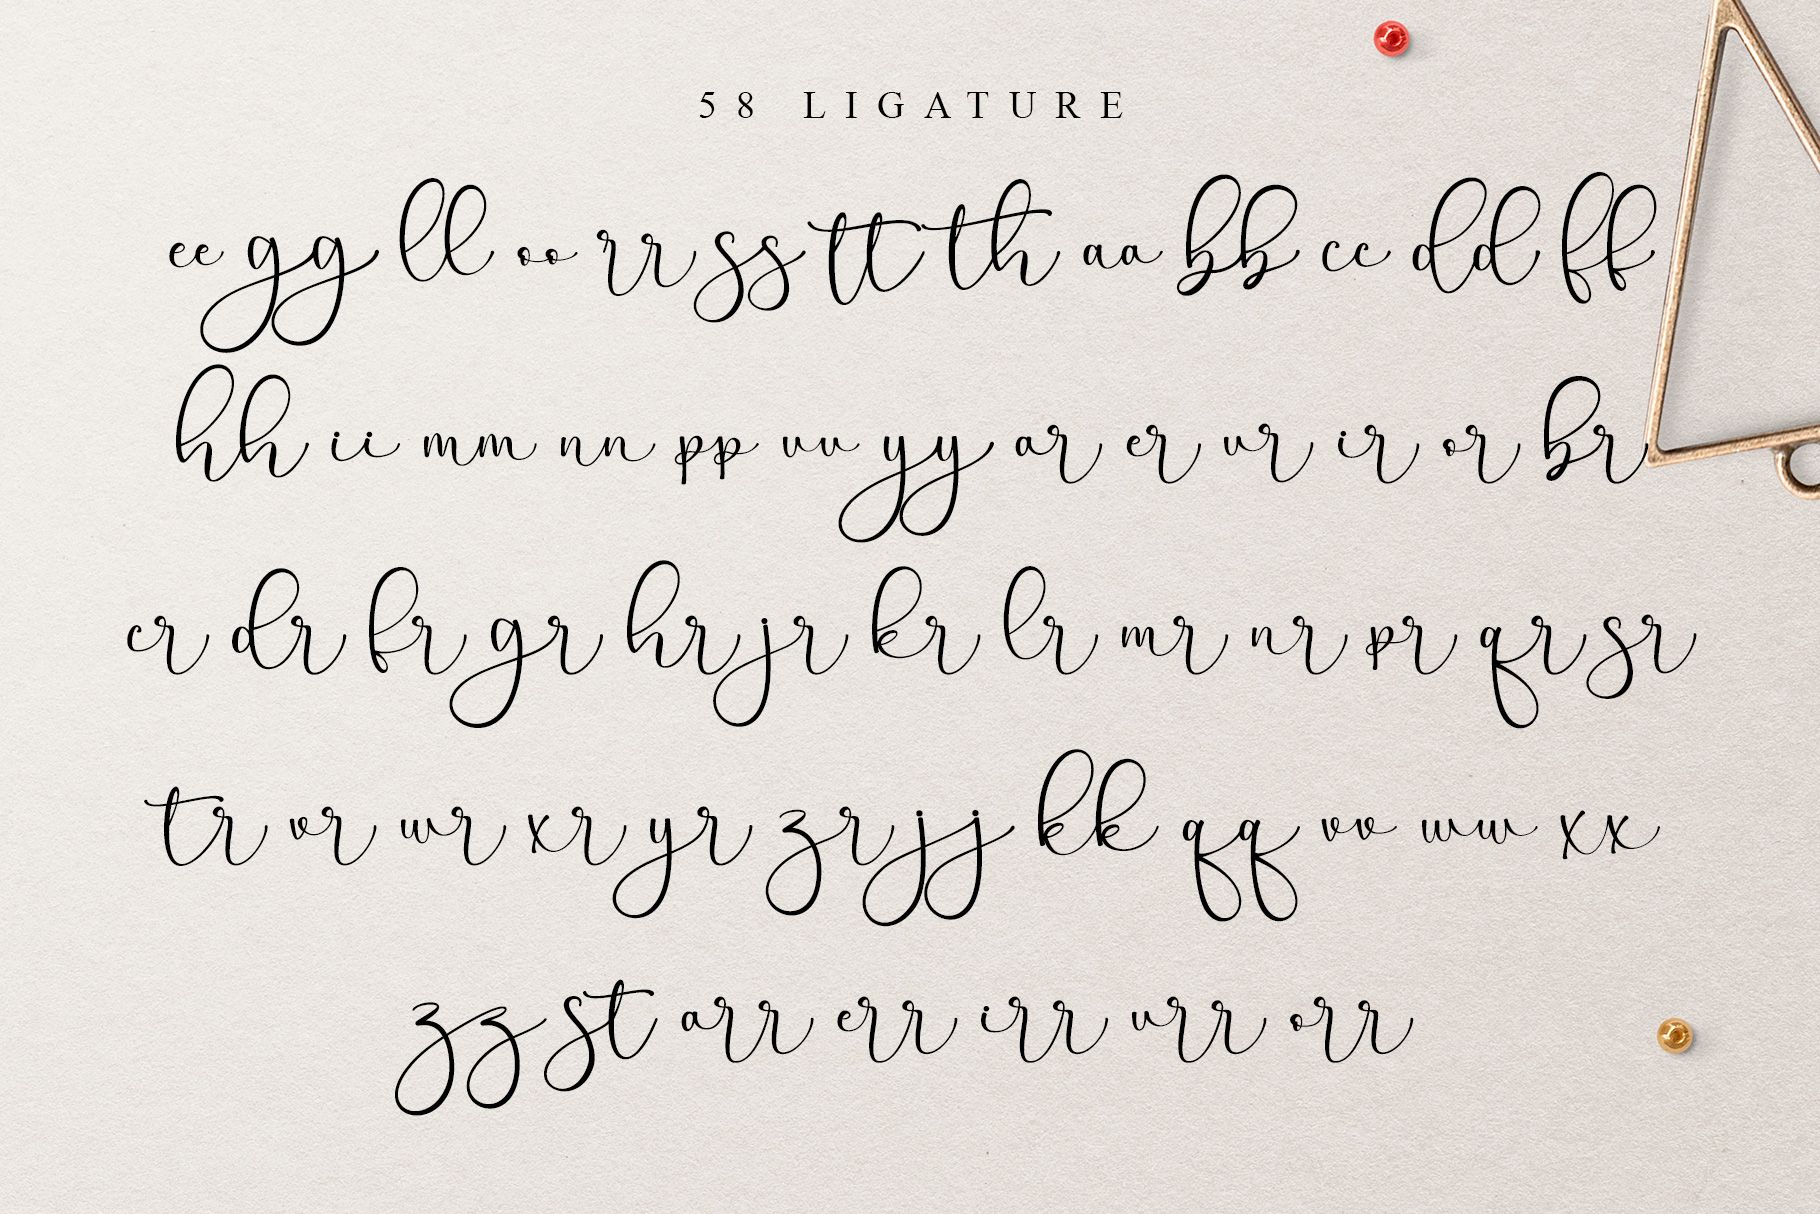 58 LIGATURE
ee gg ll oo rr ss tt th aa bb cc dd ff
hh ii mm nn pp uu yy ar er ur ir or br
cr dr fr gr hr jr kr lr mr nr pr qr sr
tr vr wr xr yr zr jj kk qq vv ww xx
zz st arr err irr urr orr